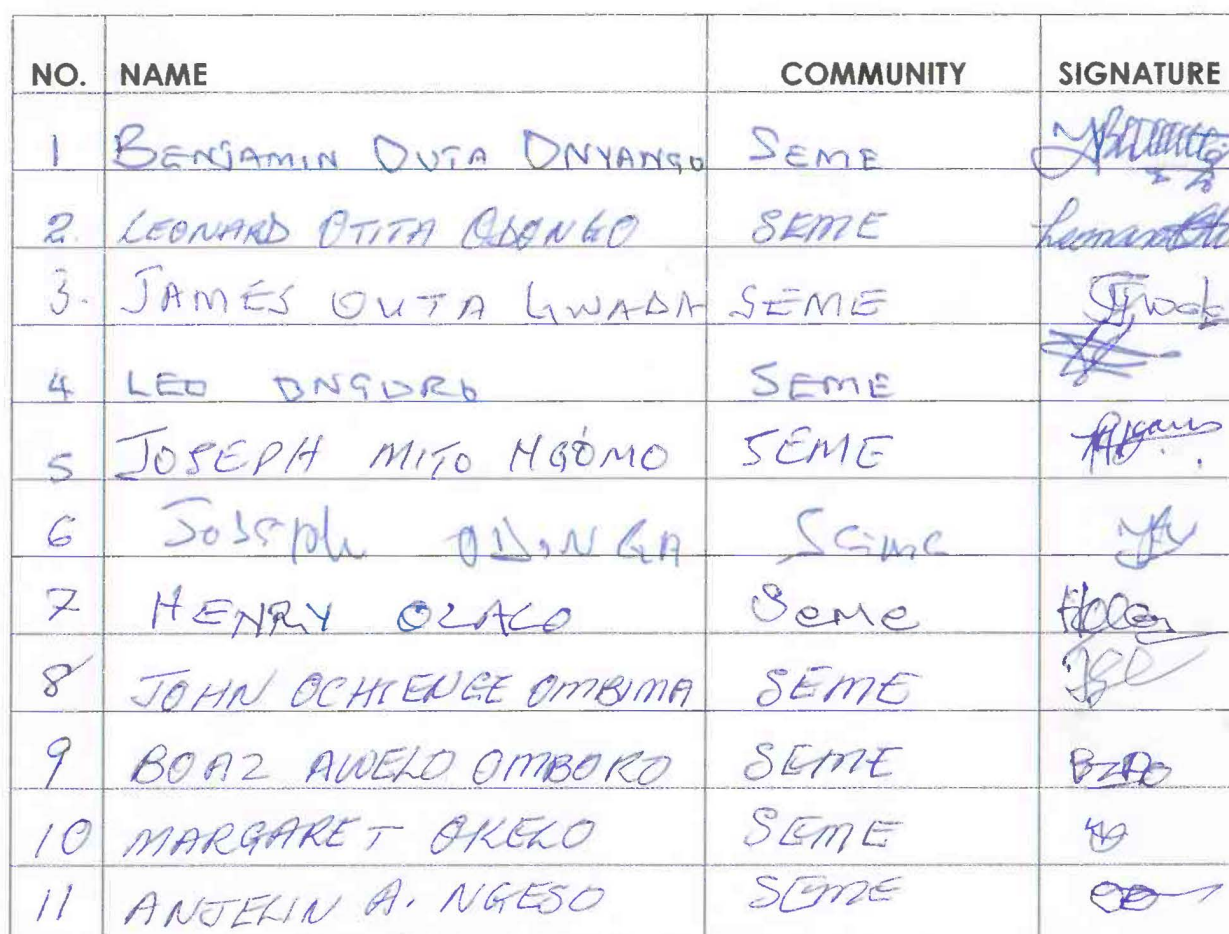 NO. NAME COMMUNITY SIGNATURE
1 BENJAMIN OUTA ONYANGO SEME
2. LEONARD OTITA ODONGO SEME
3. JAMES OUTA GWADA SEME
4 LEO ONGORO SEME
5 JOSEPH MITO NGÓMO SEME
6 Joseph ODINGA Seme
7 HENRY OLALO Seme
8 JOHN OCHIENGE OMBIMA SEME
9 BOAZ AWELO OMBORO SEME
10 MARGARET OKELO SEME
11 ANJELIN A. NGESO SEME